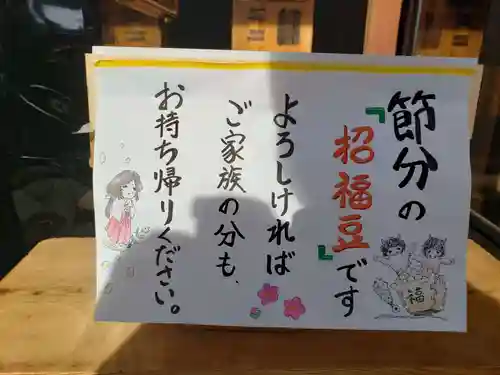 節分の
『招福豆』です
よろしければ
ご家族の分も、
お持ち帰りください。
福